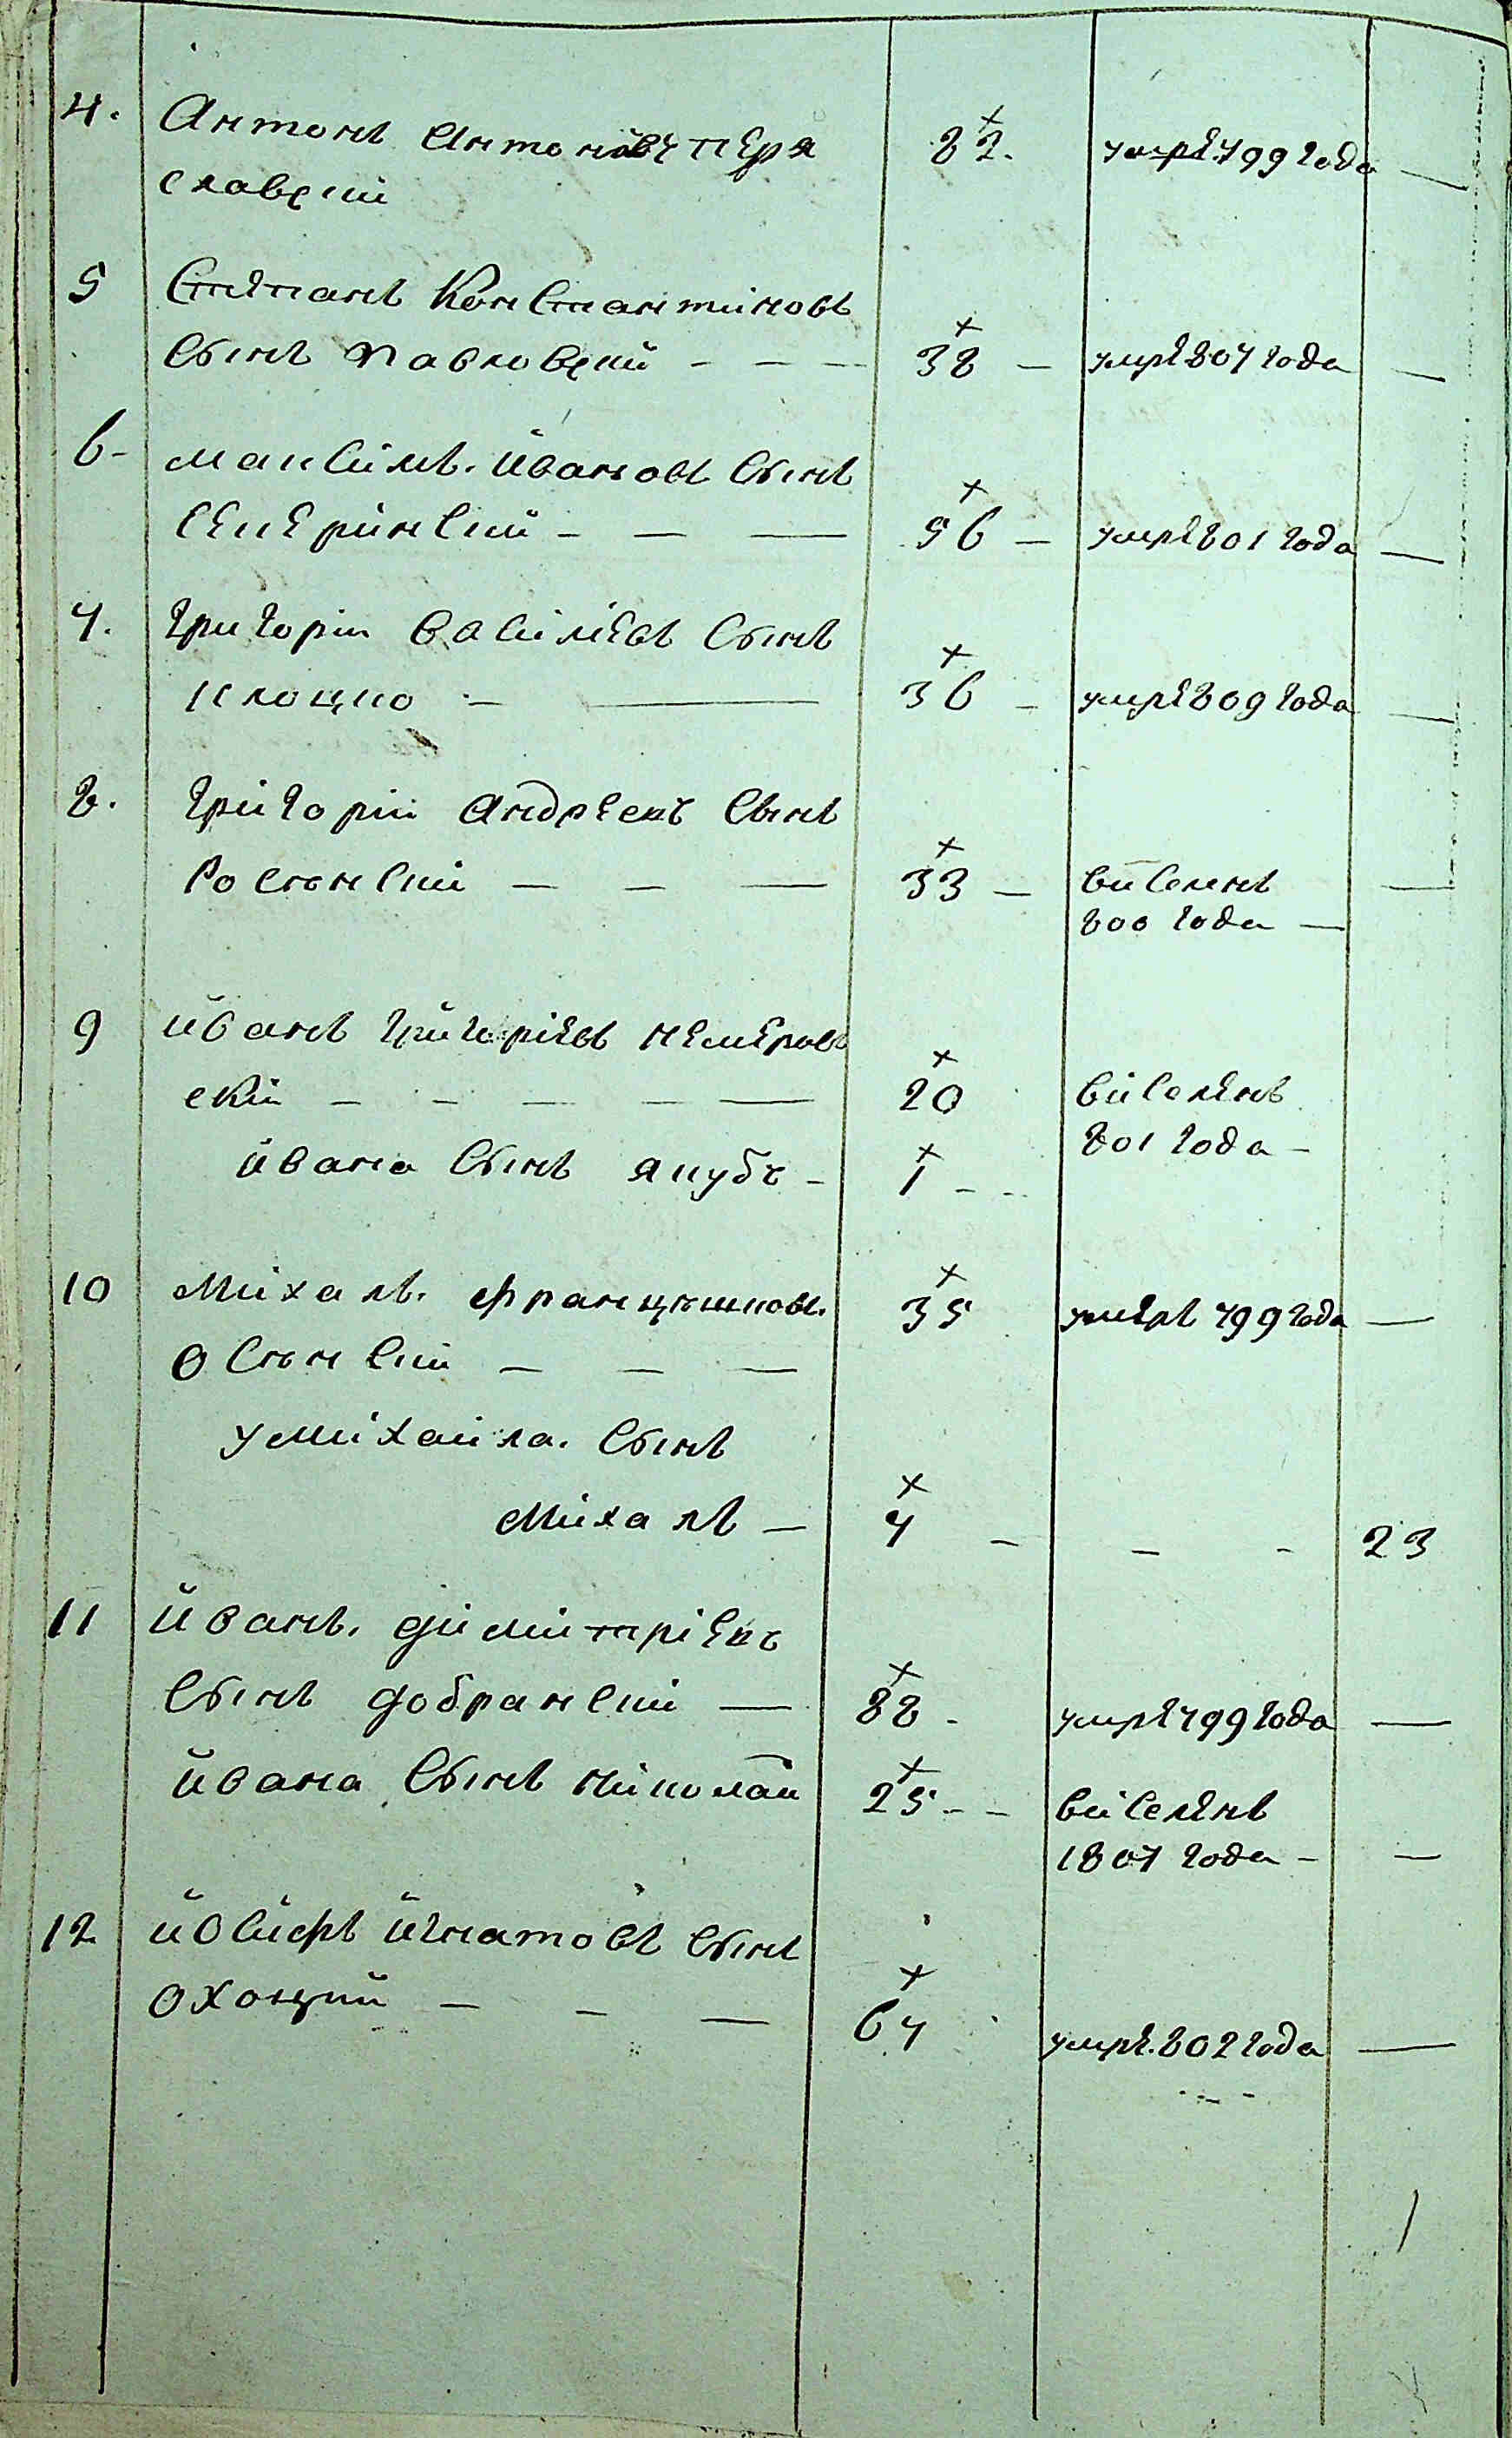 4. Антонъ Антоновъ Перя 82. умре 799 года
славский
5 Степанъ Константиновъ
сынъ Павловский 38 умре 807 года
6 Максимъ Ивановъ сынъ
Секеринский 56 умре 801 года
7. Григорий Василиевъ сынъ
Клоцко 36 умре 809 года
8. Григорий Андреевъ сынъ
Росинский 33 виселенъ
800 года
9 Иванъ Григориевъ Немеров
ский 20 виселенъ
801 года
Ивана сынъ Якубъ 1
10 Михалъ Францышковъ 35 умеръ 799 года
Осинский
у Михаила сынъ
Михалъ 7 23
11 Иванъ Димитриевъ
сынъ Добранский 88 умре 799 года
Ивана сынъ Николай 25 виселенъ
1807 года
12 Иосифъ Игнатовъ сынъ
Охоцкий 67 умре 802 года